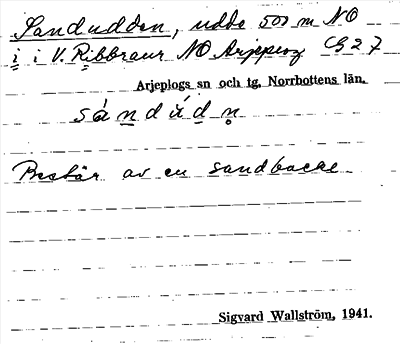 Sandudden, udde 500 m NO
i i V. Ribbraur NO Arjeplog C927
Arjeplogs sn och tg, Norrbottens län.
sándúdn̥
Består av en sandbacke
Sigvard Wallström, 1941.